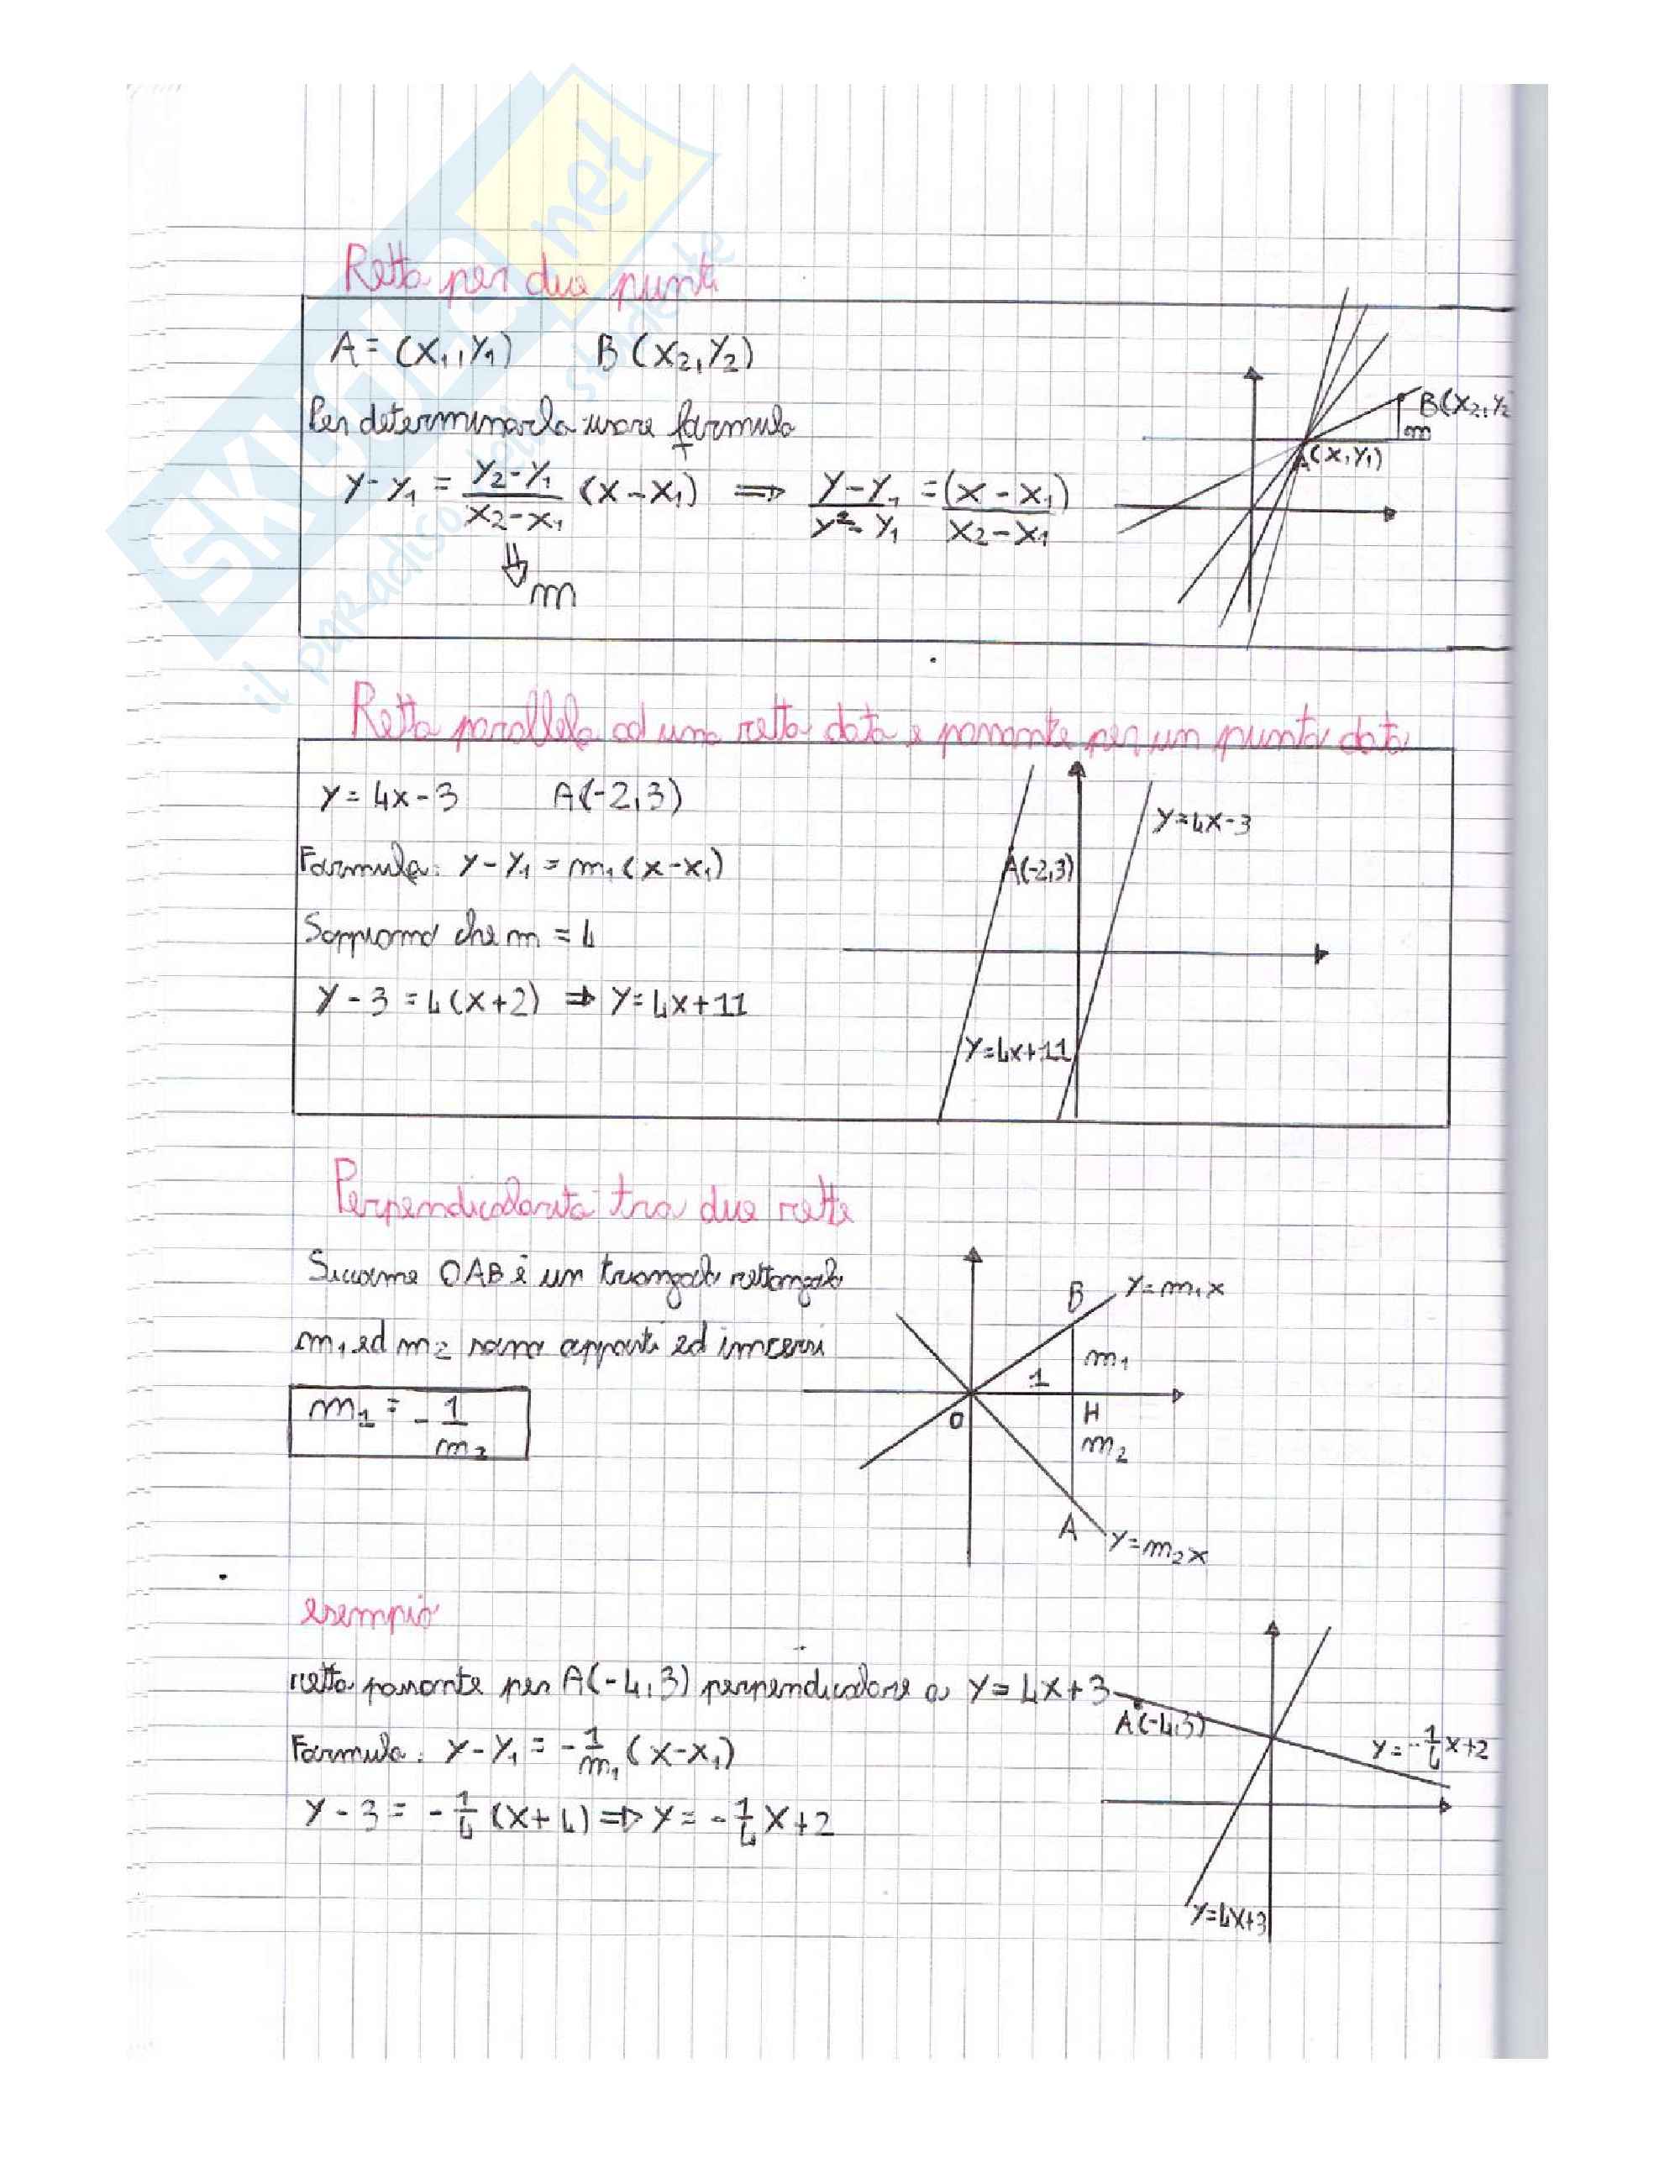 SKUOLA.net
il paradiso dello studente
Retta per due punti
A = (x₁, y₁) B (x₂, y₂)
Per determinarla usare formula
y - y₁ = (y₂ - y₁)/(x₂ - x₁) (x - x₁) ⇒ (y - y₁)/(y² - y₁) = (x - x₁)/(x₂ - x₁)
⇓ m
B (x₂, y₂
m
A (x, y₁)
Retta parallela ad una retta data e passante per un punto dato
y = 4x - 3 A(-2,3)
Formula: y - y₁ = m₁ (x - x₁)
Sappiamo che m = 4
y - 3 = 4(x+2) ⇒ y = 4x + 11
y = 4x - 3
A(-2,3)
y = 4x + 11
Perpendicolarità tra due rette
Siccome OAB è un triangolo rettangolo
m₁ ed m₂ sono opposti ed inversi
m₁ = - 1/m₂
B y = m₁x
m₁
1
O H
m₂
A y = m₂x
esempio
retta passante per A(-4,3) perpendicolare a y = 4x + 3
Formula: y - y₁ = - 1/m₁ (x - x₁)
y - 3 = - 1/4 (x + 4) ⇒ y = - 1/4 x + 2
A(-4,3)
y = - 1/4 x + 2
y = 4x + 3